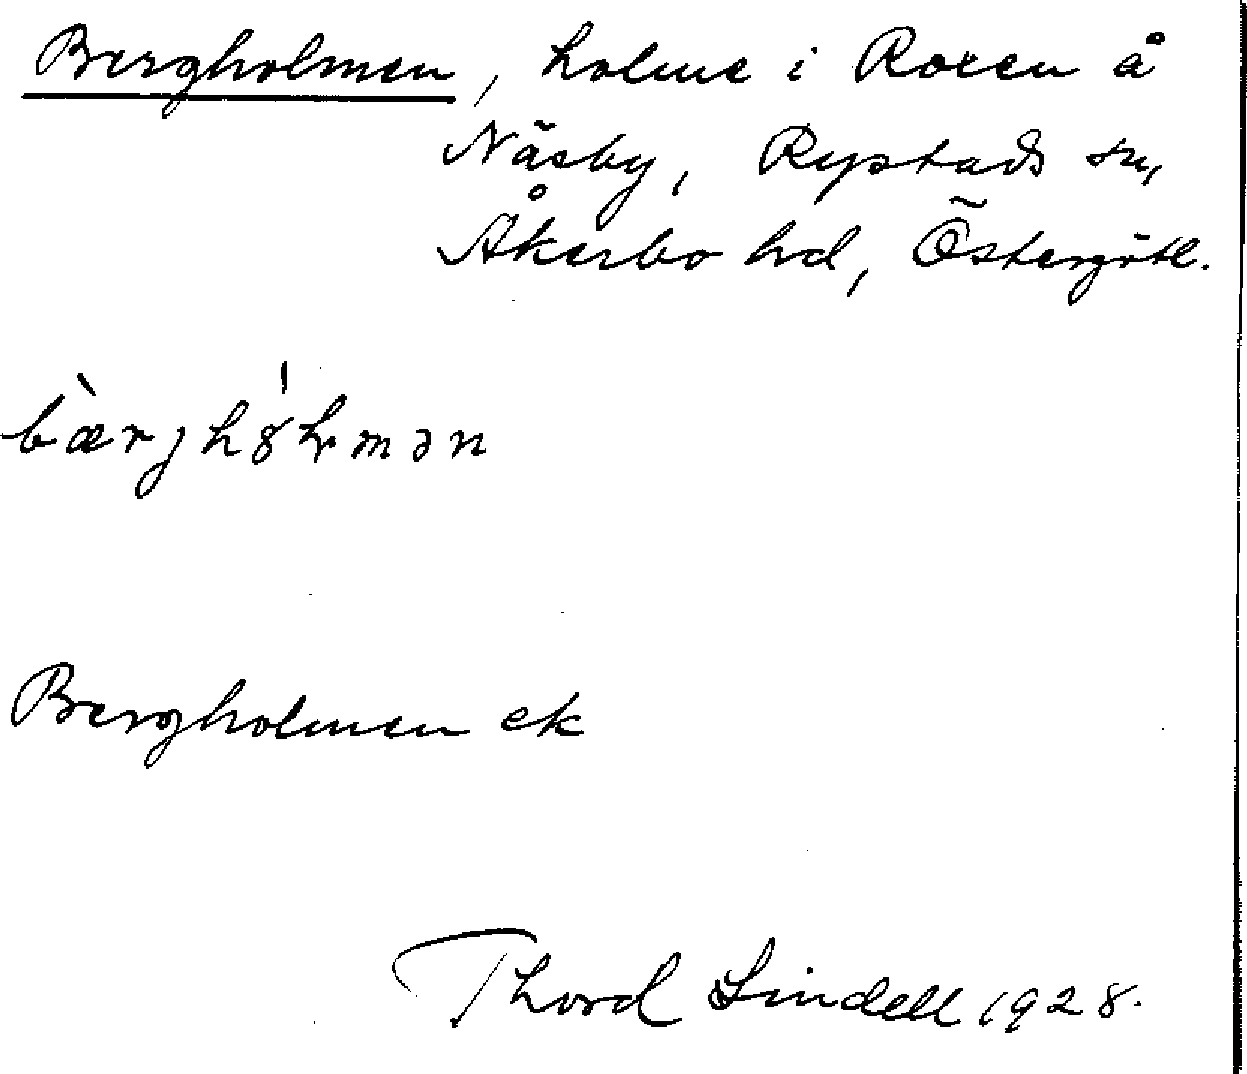 Bergholmen, holme i Roxen å
Näsby, Rystads sn,
Åkerbo hd, Östergötl.
bæ̀rjhȣ̍ɫmən
Bergholmen ek
Thord Lindell 1928.